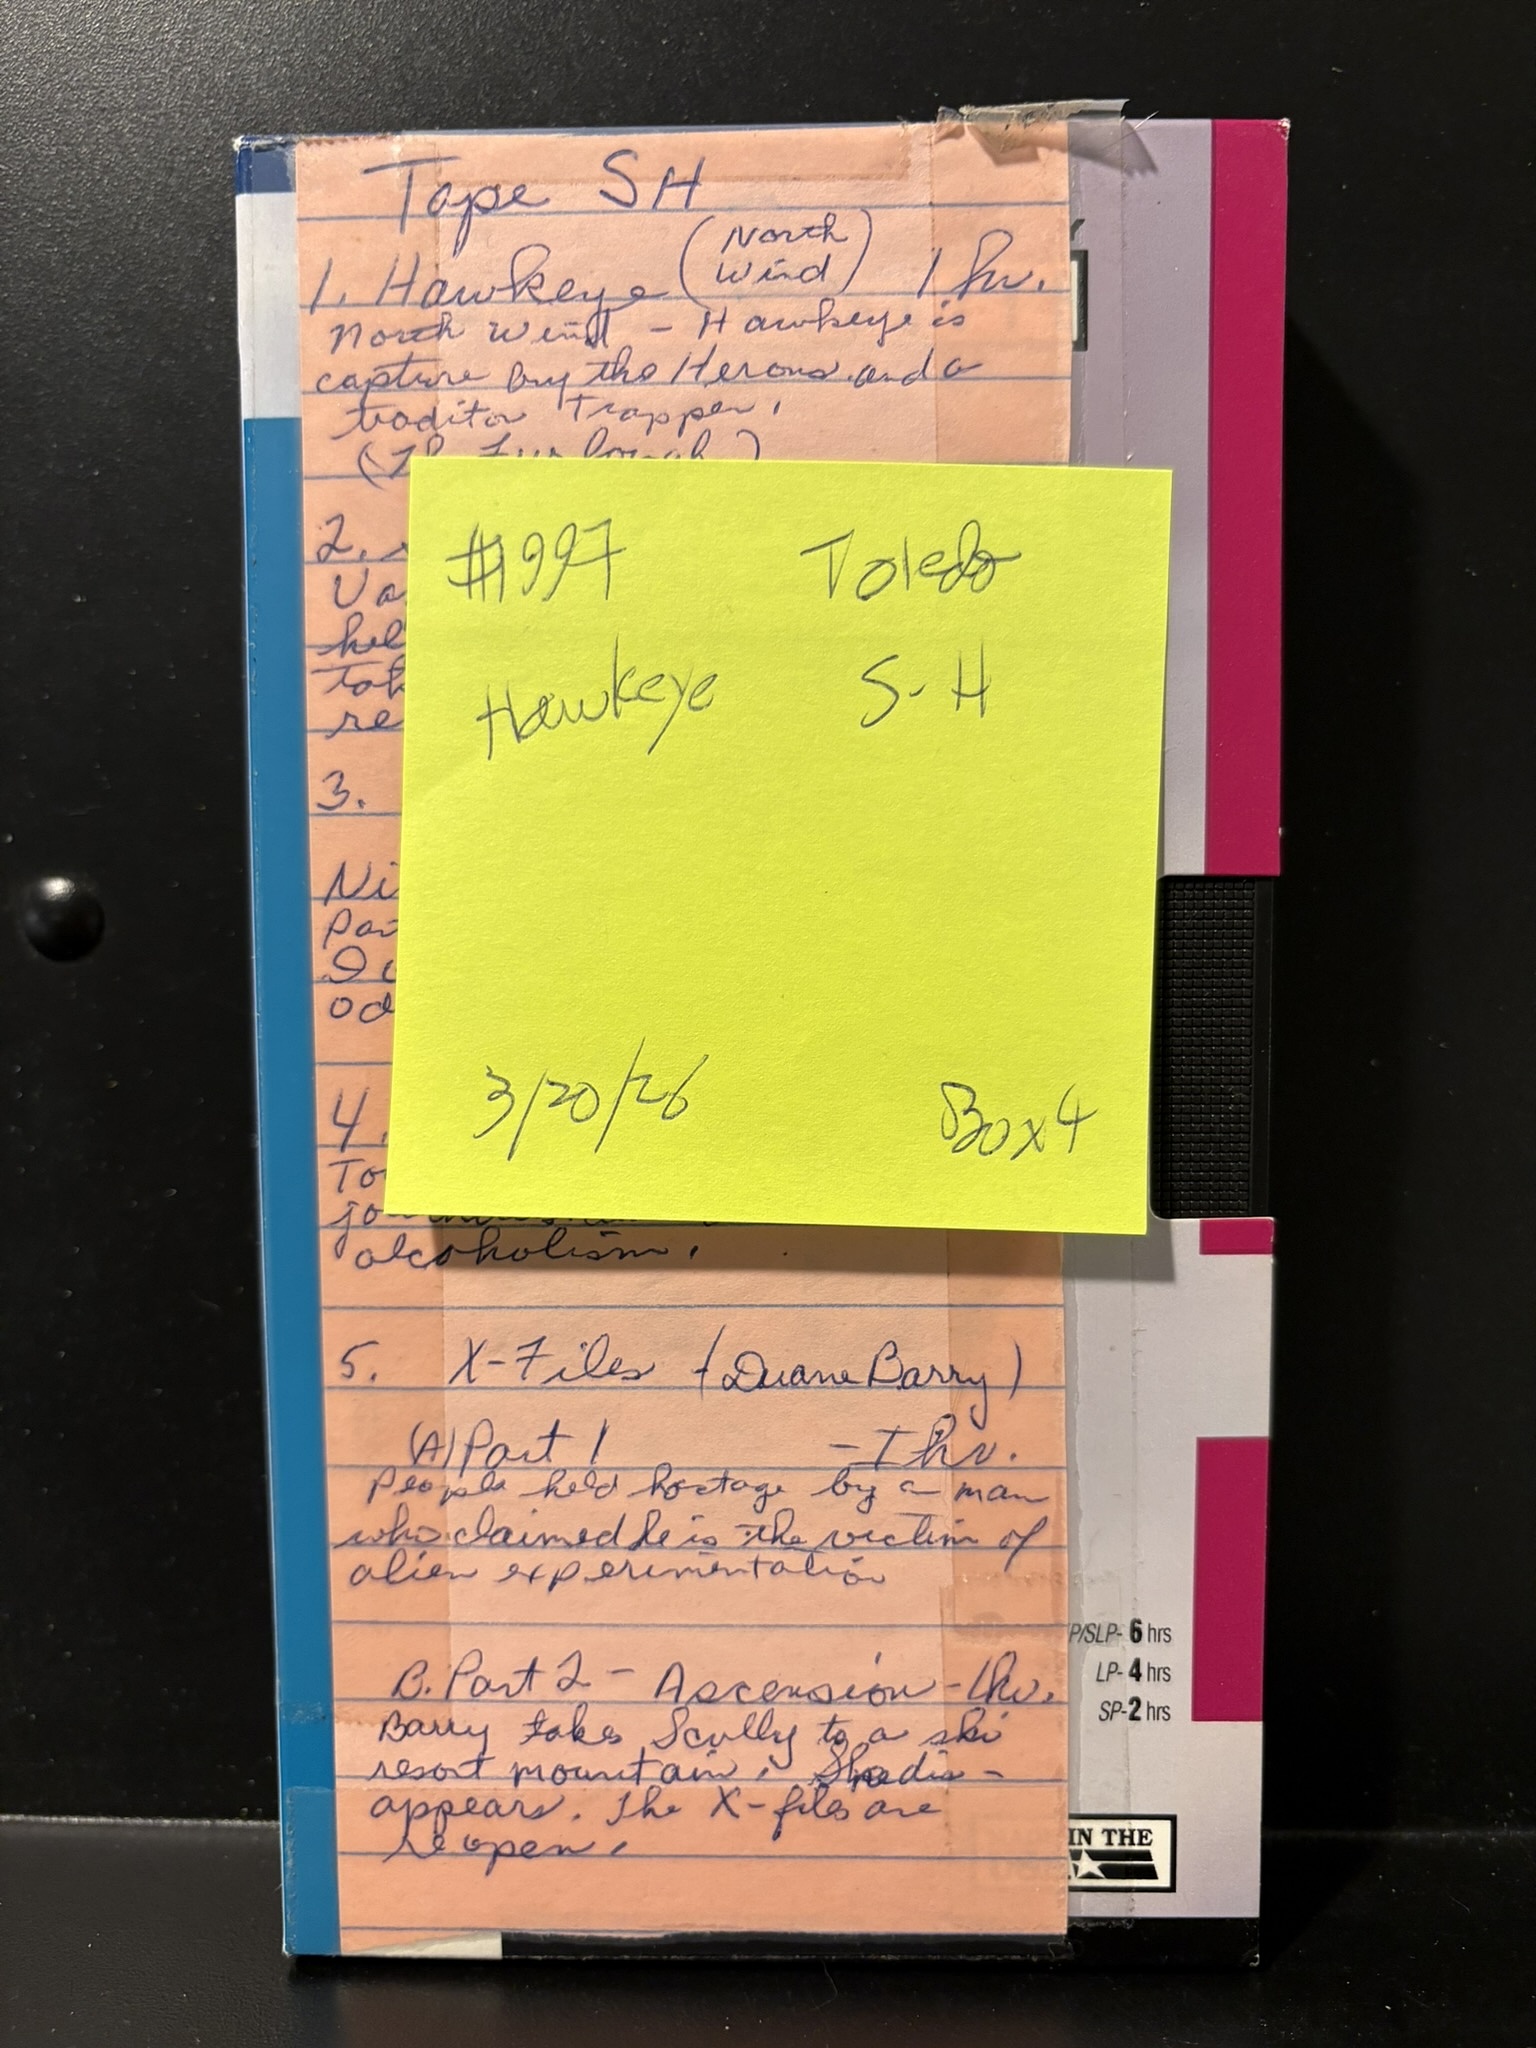 Tape SH
1. Hawkeye (North Wind) 1 hr.
North Wind - Hawkeye is
capture by the Herons and a
traditor Trapper.
#1997 Toledo
Hawkeye S-H
3/20/26 Box 4
2.
3.
4.
alcoholism.
5. X-Files (Duane Barry)
(A) Part 1 - 1 hr.
People held hostage by a man
who claimed he is the victim of
alien experimentation
B. Part 2 - Ascension - 1 hr.
Barry takes Scully to a ski
resort mountain. She dis-
appears. The X-files are
reopen.
P/SLP- 6 hrs
LP- 4 hrs
SP- 2 hrs
IN THE